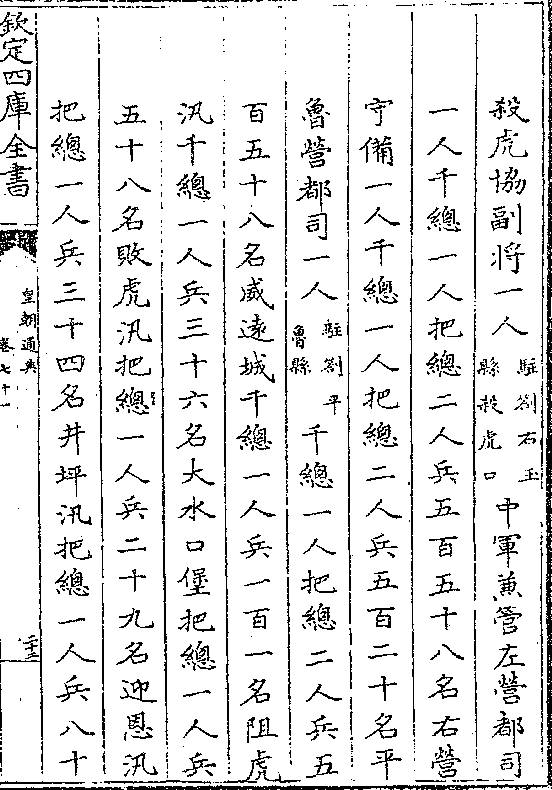 殺虎協副將一人駐劄右玉縣殺虎口中軍兼管左營都司
一人千總一人把總二人兵五百五十八名右營
守備一人千總一人把總二人兵五百二十名平
魯營都司一人駐劄平魯縣千總一人把總二人兵五
百五十八名威遠城千總一人兵一百一名阻虎
汛千總一人兵三十六名大水口堡把總一人兵
五十八名敗虎汛把總一人兵二十九名迎恩汛
把總一人兵三十四名井坪汛把總一人兵八十
欽定四庫全書
皇朝通典
卷七十一
二十三